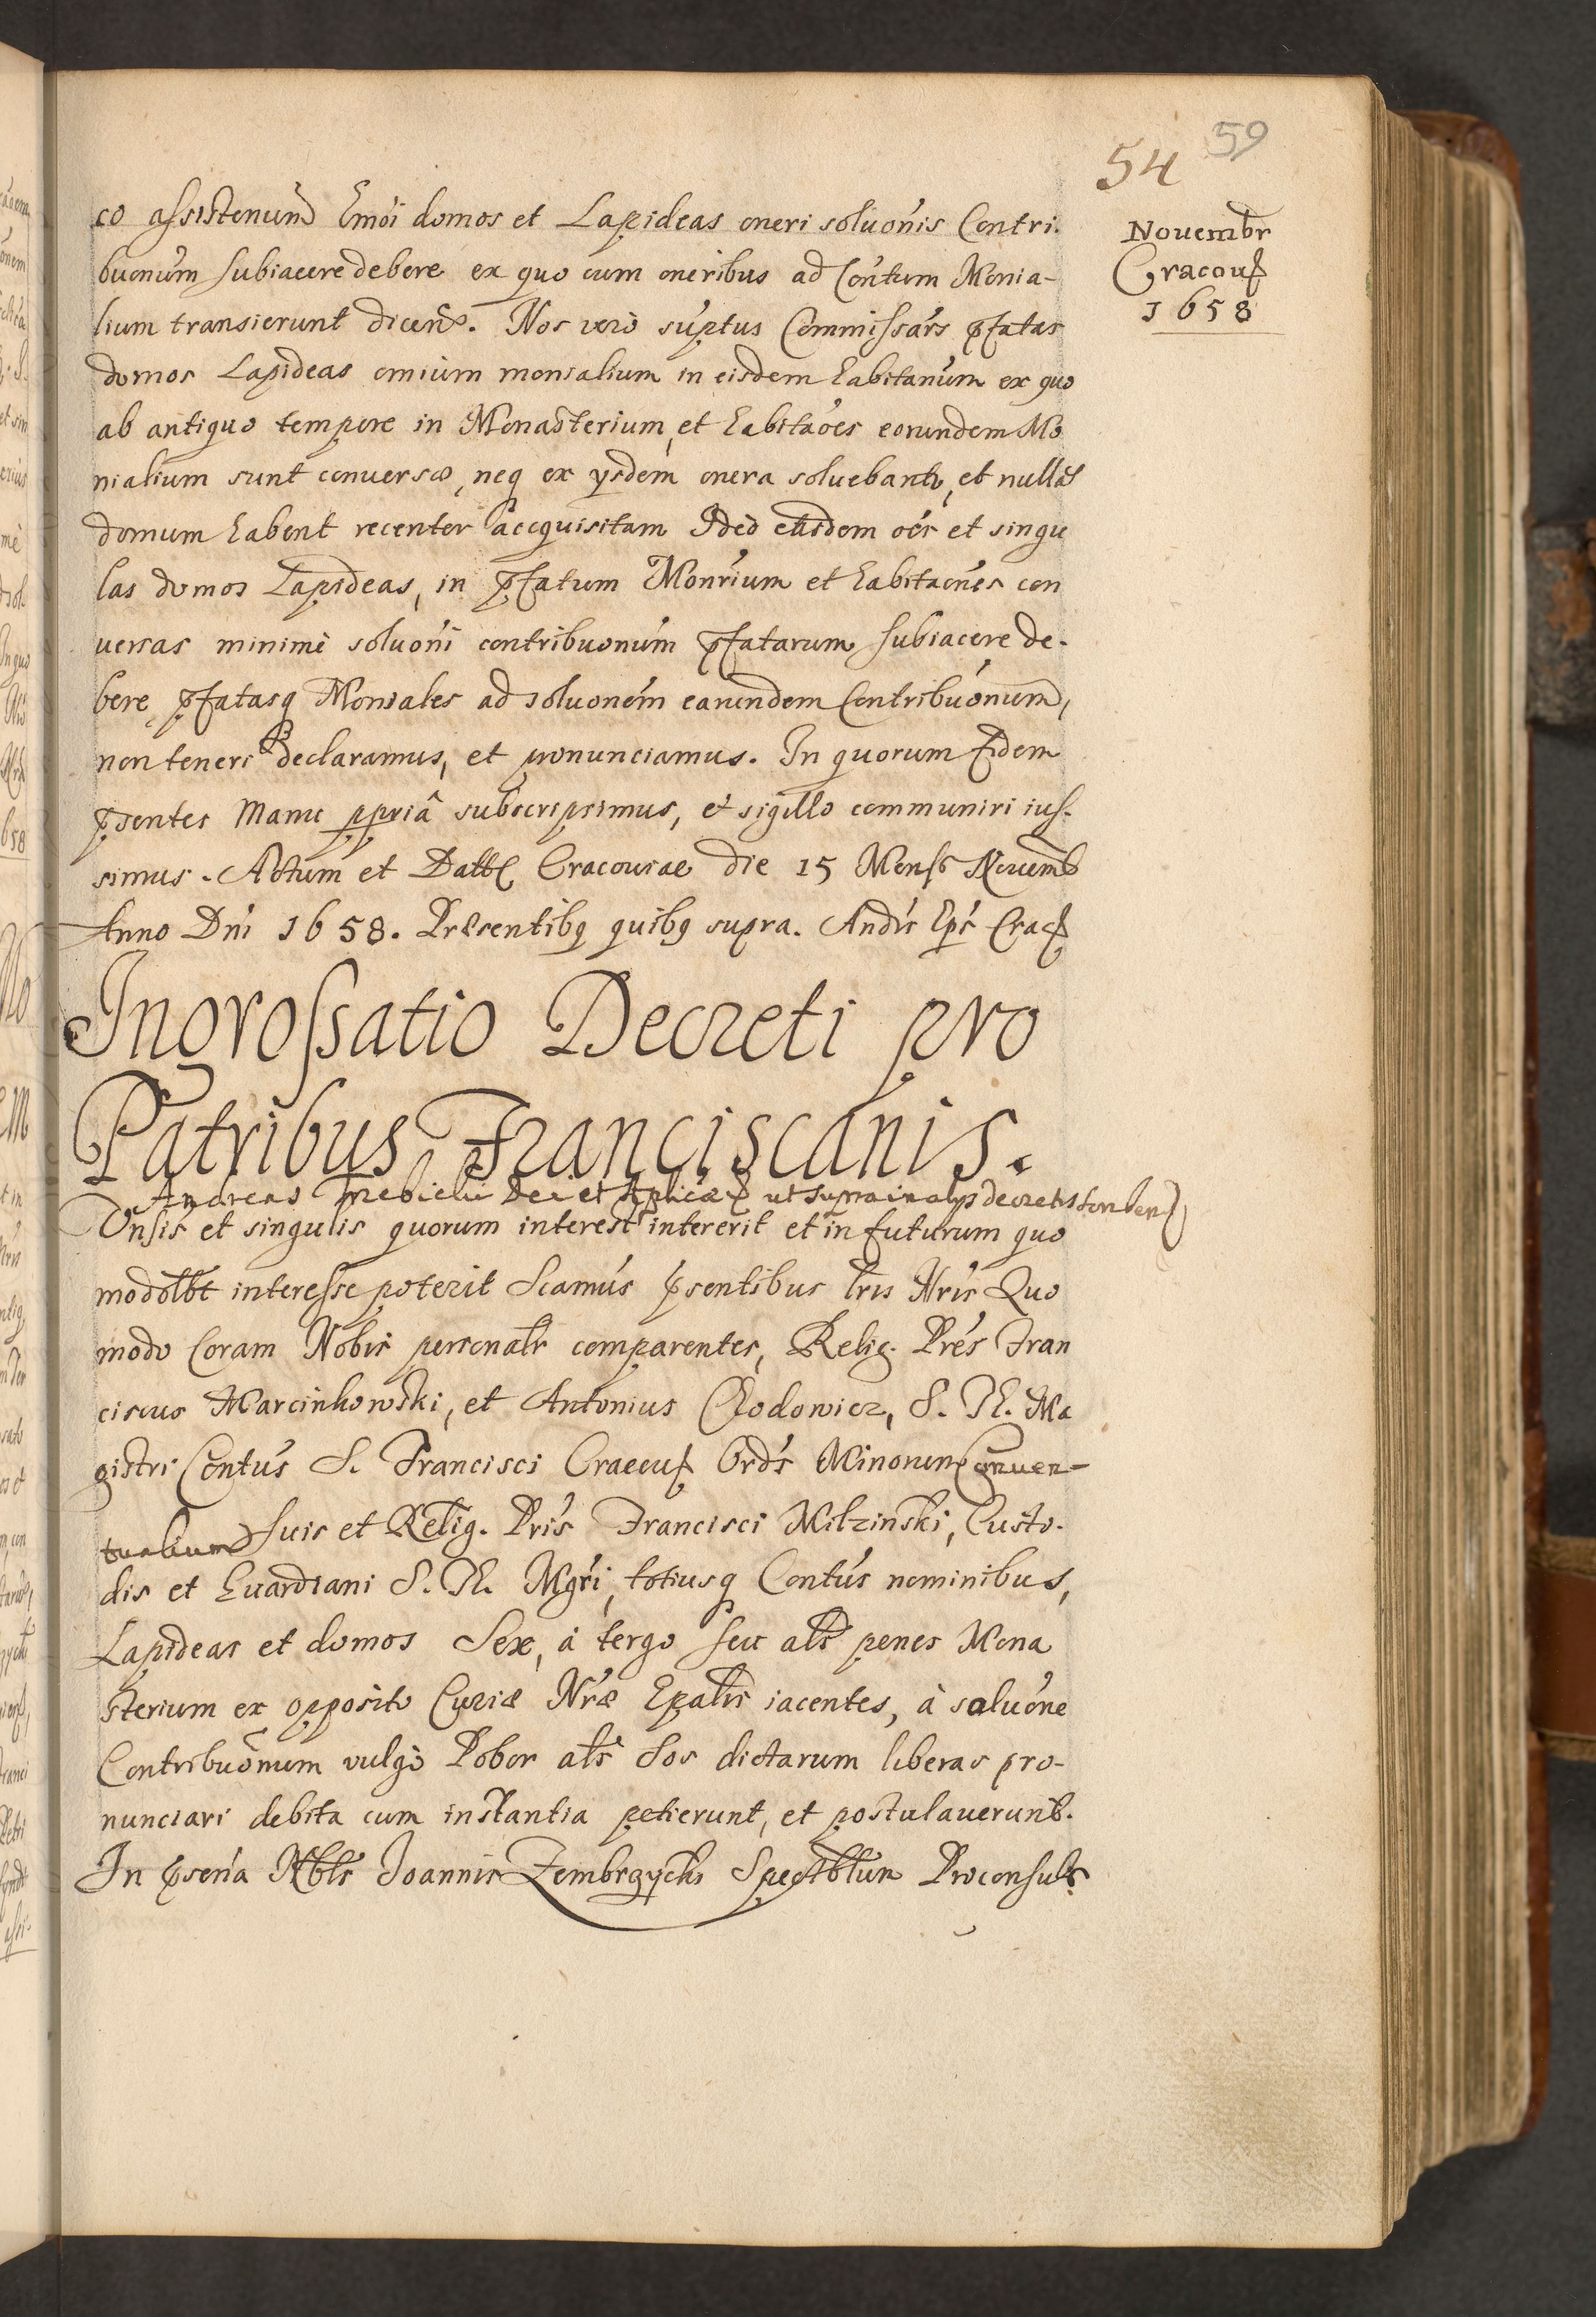 54 59
Novembr
Cracouֆ
1658
co assistenum Emói domos et Lapideas oneri soluoňis Contri.
buonum subiacere debere ex quo cum oneribus ad Contum Monia-
lium transierunt dicen. Nos vero suptus Commissars pfatas
domos Lapideas omium monialium in eisdem habitanum ex quo
ab antiquo tempore in Monasterium, et habitaoes eorundem Mo
nialium sunt conversæ, neq ex ijsdem onera soluebantr, et nullã
domum habent recenter accquisitam Ideo easdem oes et singu
las domos Lapideas, in pfatum Monrium et habitaones con
versas minimè soluoni contribuonum pfatarum subiacere de-
bere pfatasq Moniales ad soluonem earundem Contribuonum,
non teneri declaramus, et pronunciamus. In quorum fidem
psentes Manu ppriâ subscripsimus, et sigillo communiri ius-
simus. Actum et Datt Cracouiae die 15 Mens Nouemb
Anno Dni 1658. Præsentibq quibq supra. Andrs Eps Crac
Ingrossatio Decreti pro
Patribus Franciscanis.
Andreas Trzebicki Dei et Aplicæ ut supra in alijs decretis
Vnsis et singulis quorum interest intererit et in futurum quo
modolbt interesse poterit Scamus psentibus lris Nris Quo
modo Coram Nobis personalr comparentes, Relig. Pres Fran
ciscus Marcinkowski, et Antonius Chodowicz, S. Th. Ma
gistri Contus S. Francisci Cracou Ords Minorum Conuen-
tualium suis et Relig. Pris Francisci Milzinski, Custo-
dis et Guardiani S. Th. Mgri, totiusq Contus nominibus,
Lapideas et domos Sex, à tergo seu als penes Mona
sterium ex opposito Curiæ Nræ Epalis iacentes, à soluone
Contribuonum vulgò Pobor als Sos dictarum liberas pro-
nunciari debita cum instantia petierunt, et postulauerunt.
In psena Nbls Joannis Zembrzycki Spectblium Proconsuls